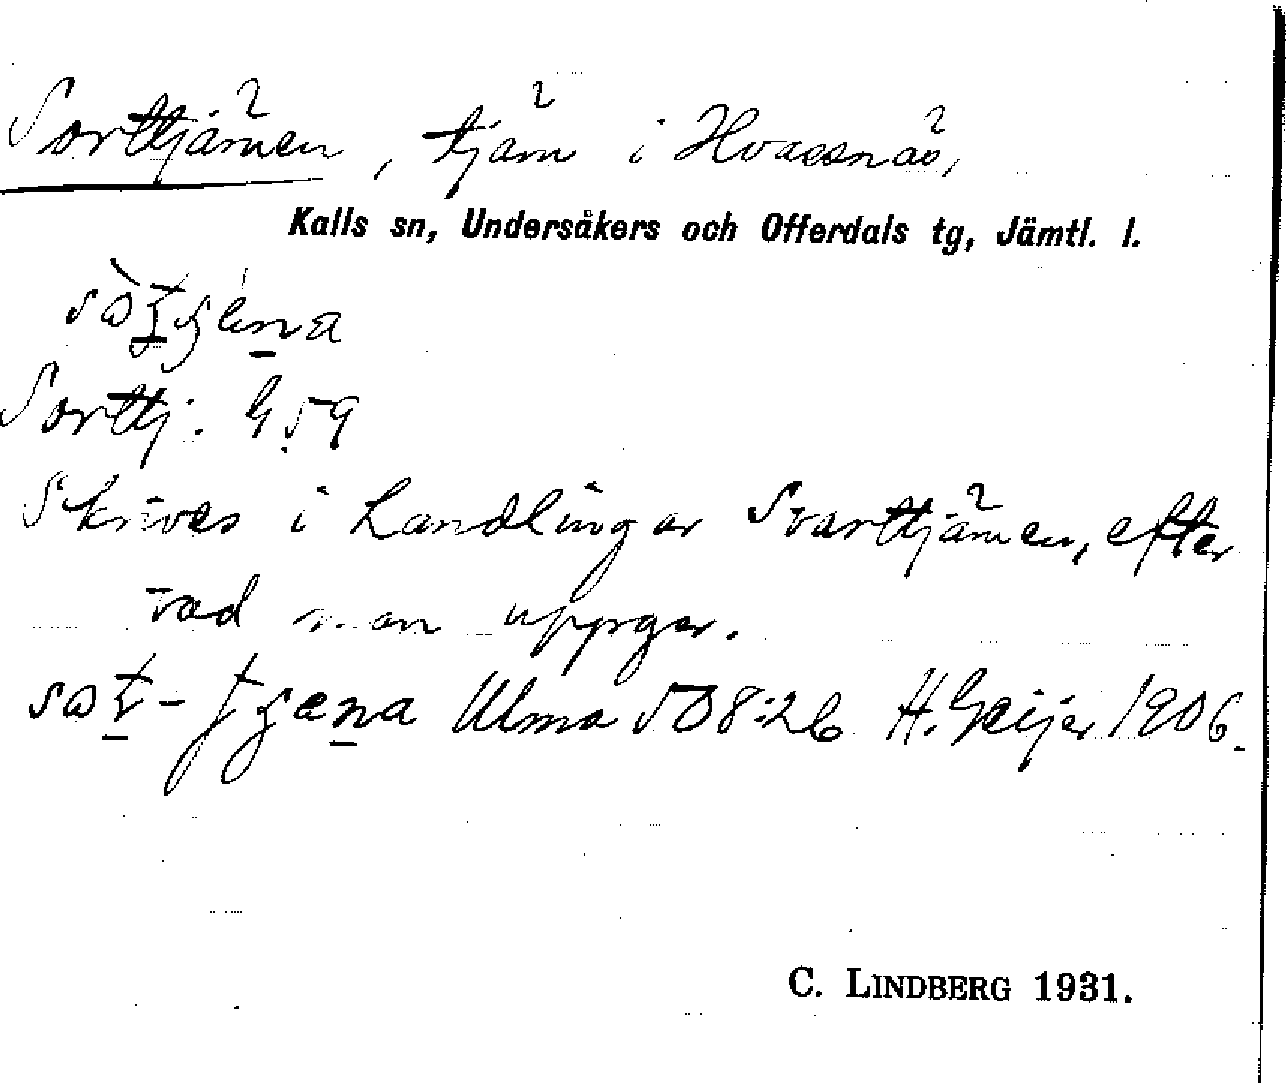 Sorttjärnen, tjärn i Hvassnäs,
Kalls sn, Undersåkers och Offerdals tg, Jämtl. l.
Sorttj. G 59
Skrives i handlingar Svarttjärnen, efter
vad man uppger.
Ulma 508:26 H. Geijer 1906.
C. LINDBERG 1931.